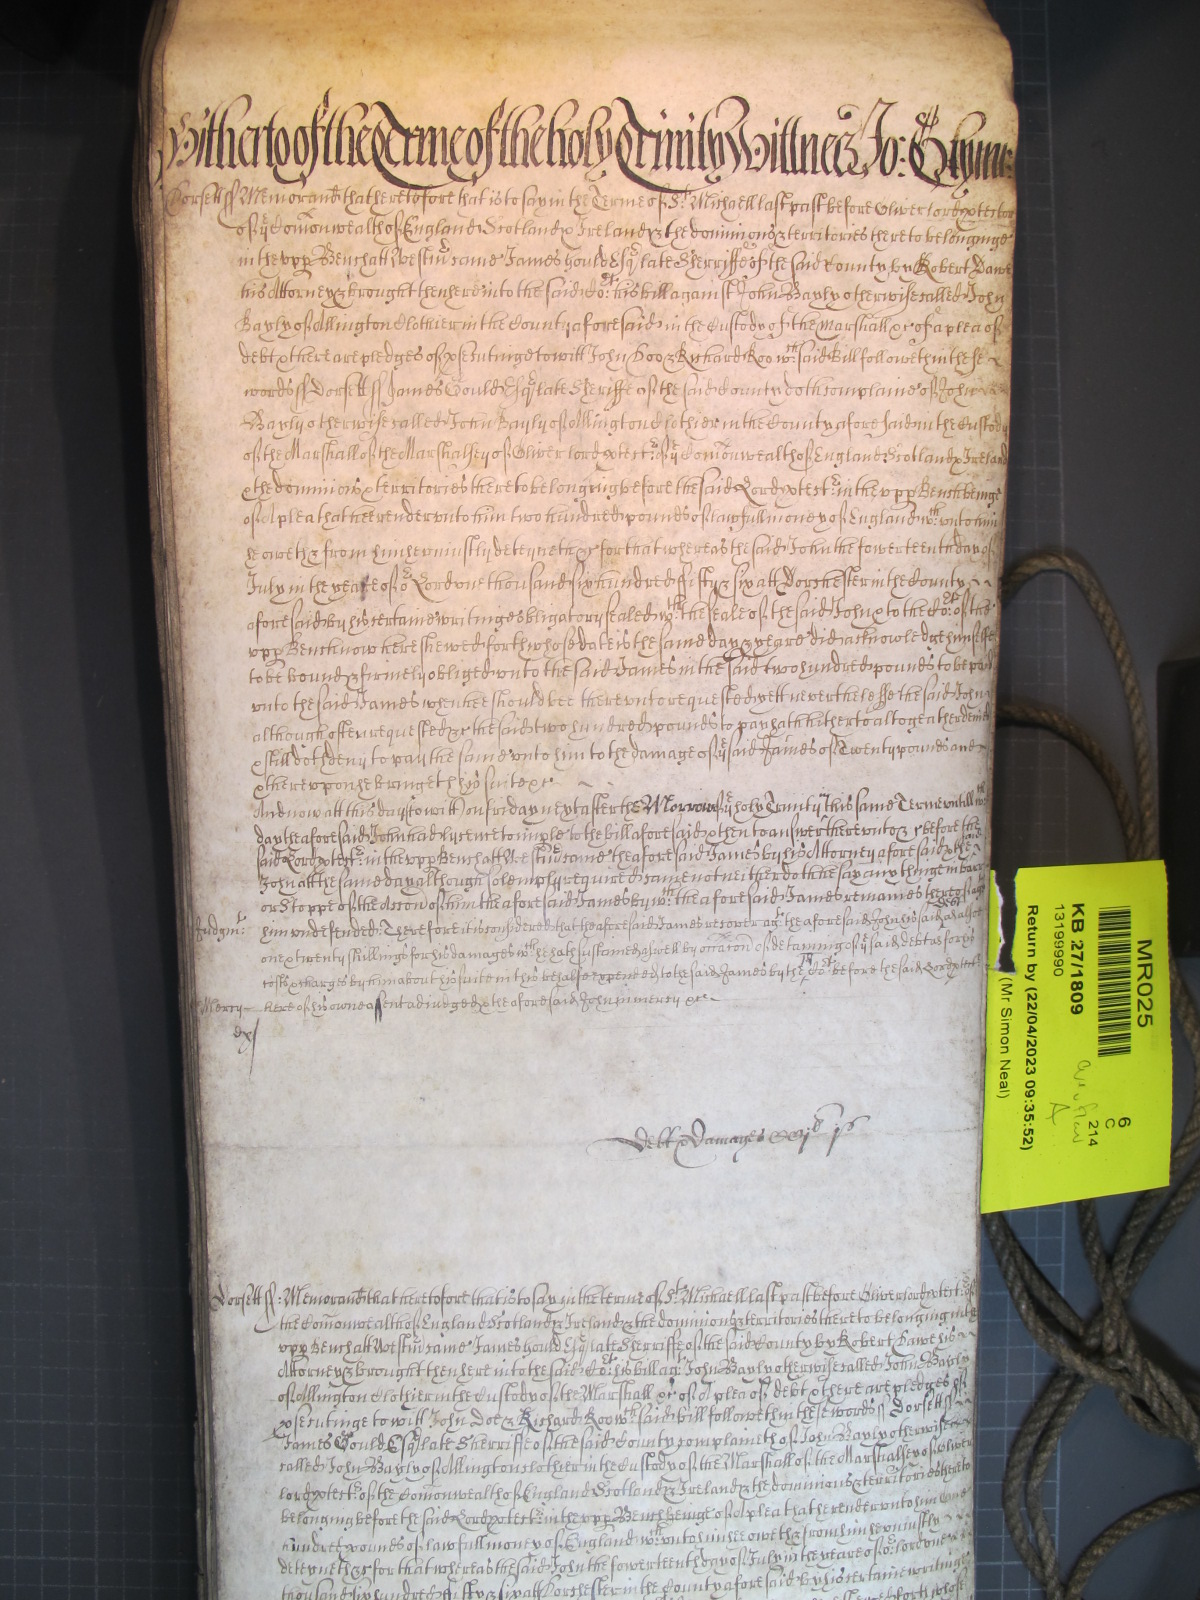 Hitherto of the Terme of the holy Trinity Wittnes Jo: Glynne
Dorsett ss Memorand that heretofore that is to say in the Terme of St Michaell last past before Oliver lord ptector
of ye Comonwealth of England Scotland & Ireland & the dominions & territories thereto belonginge
in the vpp Bench att Westmr came James Gould Esqr late Sherriffe of the said County by Robert Dawe
his Attorney & brought then here into the said Cort his bill against John Bayly otherwise called John
Bayly of Allington Clothier in the County aforesaid in the Custody of the Marshall &c of a plea of
debt & there are pledges of psecutinge to witt John Doo & Richard Roo wch said Bill followeth in these
words ss Dorsett ss James Gould Esqr late Sheriffe of the said County doth complaine of John
Bayly otherwise called John Bayly of Allington Clothier in the County aforesaid in the Custody
of the Marshall of the Marshalsey of Oliver lord ptectr of ye Comonwealth of England Scotland & Ireland
& the dominions & territories thereto belonging before the said Lord ptectr in the vpp Bench beinge
of A plea that hee render vnto him two hundred pounds of lawfull money of England wch vnto him
he oweth & from him he vniustly deteyneth &c for that whereas the said John the fowerteenth day of
July in the yeare of or Lord one thousand six hundred fifty & six att Dorchester in the County
aforesaid by his certaine writinge obligatory sealed wth the seale of the said John & to the Cort of the
vpp Bench now here shewed forth whose date is the same day & yeare did acknowledge himselfe
to be bound & firmely obliged vnto the said James in the said two hundred pounds to be paid
vnto the said James when hee should bee therevnto requested yett neverthelesse the said John
although often requested &c the said two hundred pounds to pay hath hitherto altogeather denied
& still doth deny to pay the same vnto him to the damage of ye said James of Twenty pounds and
& therevpon he bringeth his suite &c
And now att this day to witt on friday next after the Morrow of ye holy Trinity this same Terme vntill wch
day the aforesaid John had lycence to imple to the bill aforesaid & then to answer therevnto &c before the
said Lord ptectr in the vpp Bench att Westmr came the aforesaid James by his Attorney aforesaid & the said
John att the same day although solemply required came not neither doth he say any thinge in barr
or Stoppe of the Accon of him the aforesaid James by wch the aforesaid James remaines thereof agt
Judgmt him vndefended Therefore it is considered that the aforesaid James recover agt the aforesaid John his said debt alsoe
one & twenty shillings for his damages wch he hath sustained aswell by occacon of detaining of ye said debt as for his
costs & charges by him about his suite in this behalfe expended to the said James by the Cort before the said Lord ptectr
Mercy here of his owne assent adiudged & the aforesaid John in mercy &c
Debt & Damages CCjli js
Dorsett ss Memorand that heretofore that is to say in the terme of St Michaell last past before Oliver lord ptectr of
the Comonwealth of England Scotland & Ireland & the dominions & territories thereto belonging in the
vpp Bench att Westmr came James Gould Esqr late Sherriffe of the said County by Robert Dawe his
Attorney & brought then here into the said Cort his bill agt John Bayly otherwise called John Bayly
of Allington Clothier in the Custody of the Marshall &c of A plea of debt & there are pledges of
psecutinge to witt John Doe & Richard Roo wch said bill followeth in these words ss Dorsett ss
James Gould Esqr late Sherriffe of the said County complaineth of John Bayly otherwise
called John Bayly of Allington clothier in the Custody of the Marshall of the Marshalsey of Oliver
lord ptectr of the Comonwealth of England Scotland & Ireland & the dominions & territories thereto
belonging before the said Lord ptectr in the vpp Bench beinge of A plea that he render vnto him one
hundred pounds of lawfull money of England wch vnto him hee oweth & from him he vniustly
deteyneth &c for that whereas the said John the fowerteenth day of July in the yeare of or lord one
thousand six hundred fifty & six att Dorchester in the County aforesaid by his certaine writinge
MR025
KB 27/1809
13199990
6
C
214
Return by (22/04/2023 09:35:52)
(Mr Simon Neal)